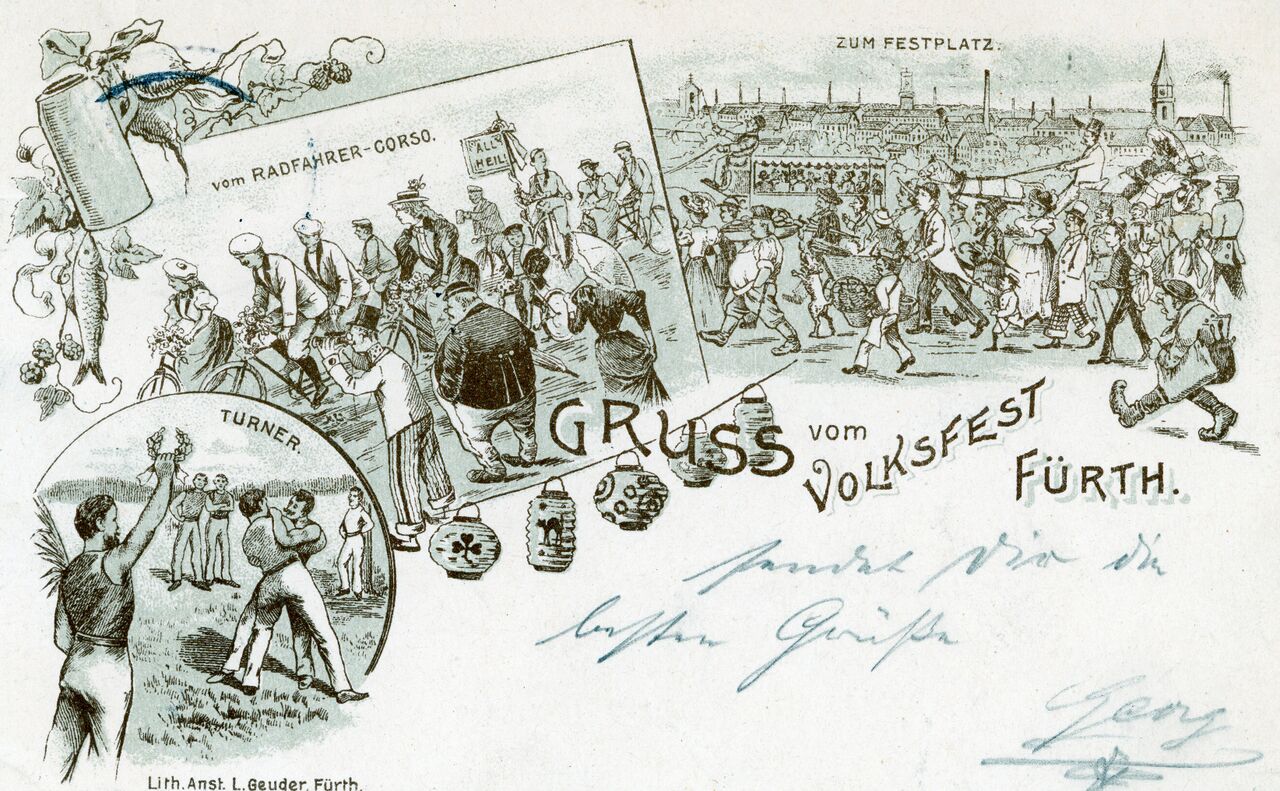 ZUM FESTPLATZ.
vom RADFAHRER-CORSO.
ALL
HEIL
TURNER.
GRUSS vom VOLKSFEST
FÜRTH.
sendet Dir die
besten Grüße
Georg
Lith. Anst. L. Geuder, Fürth.